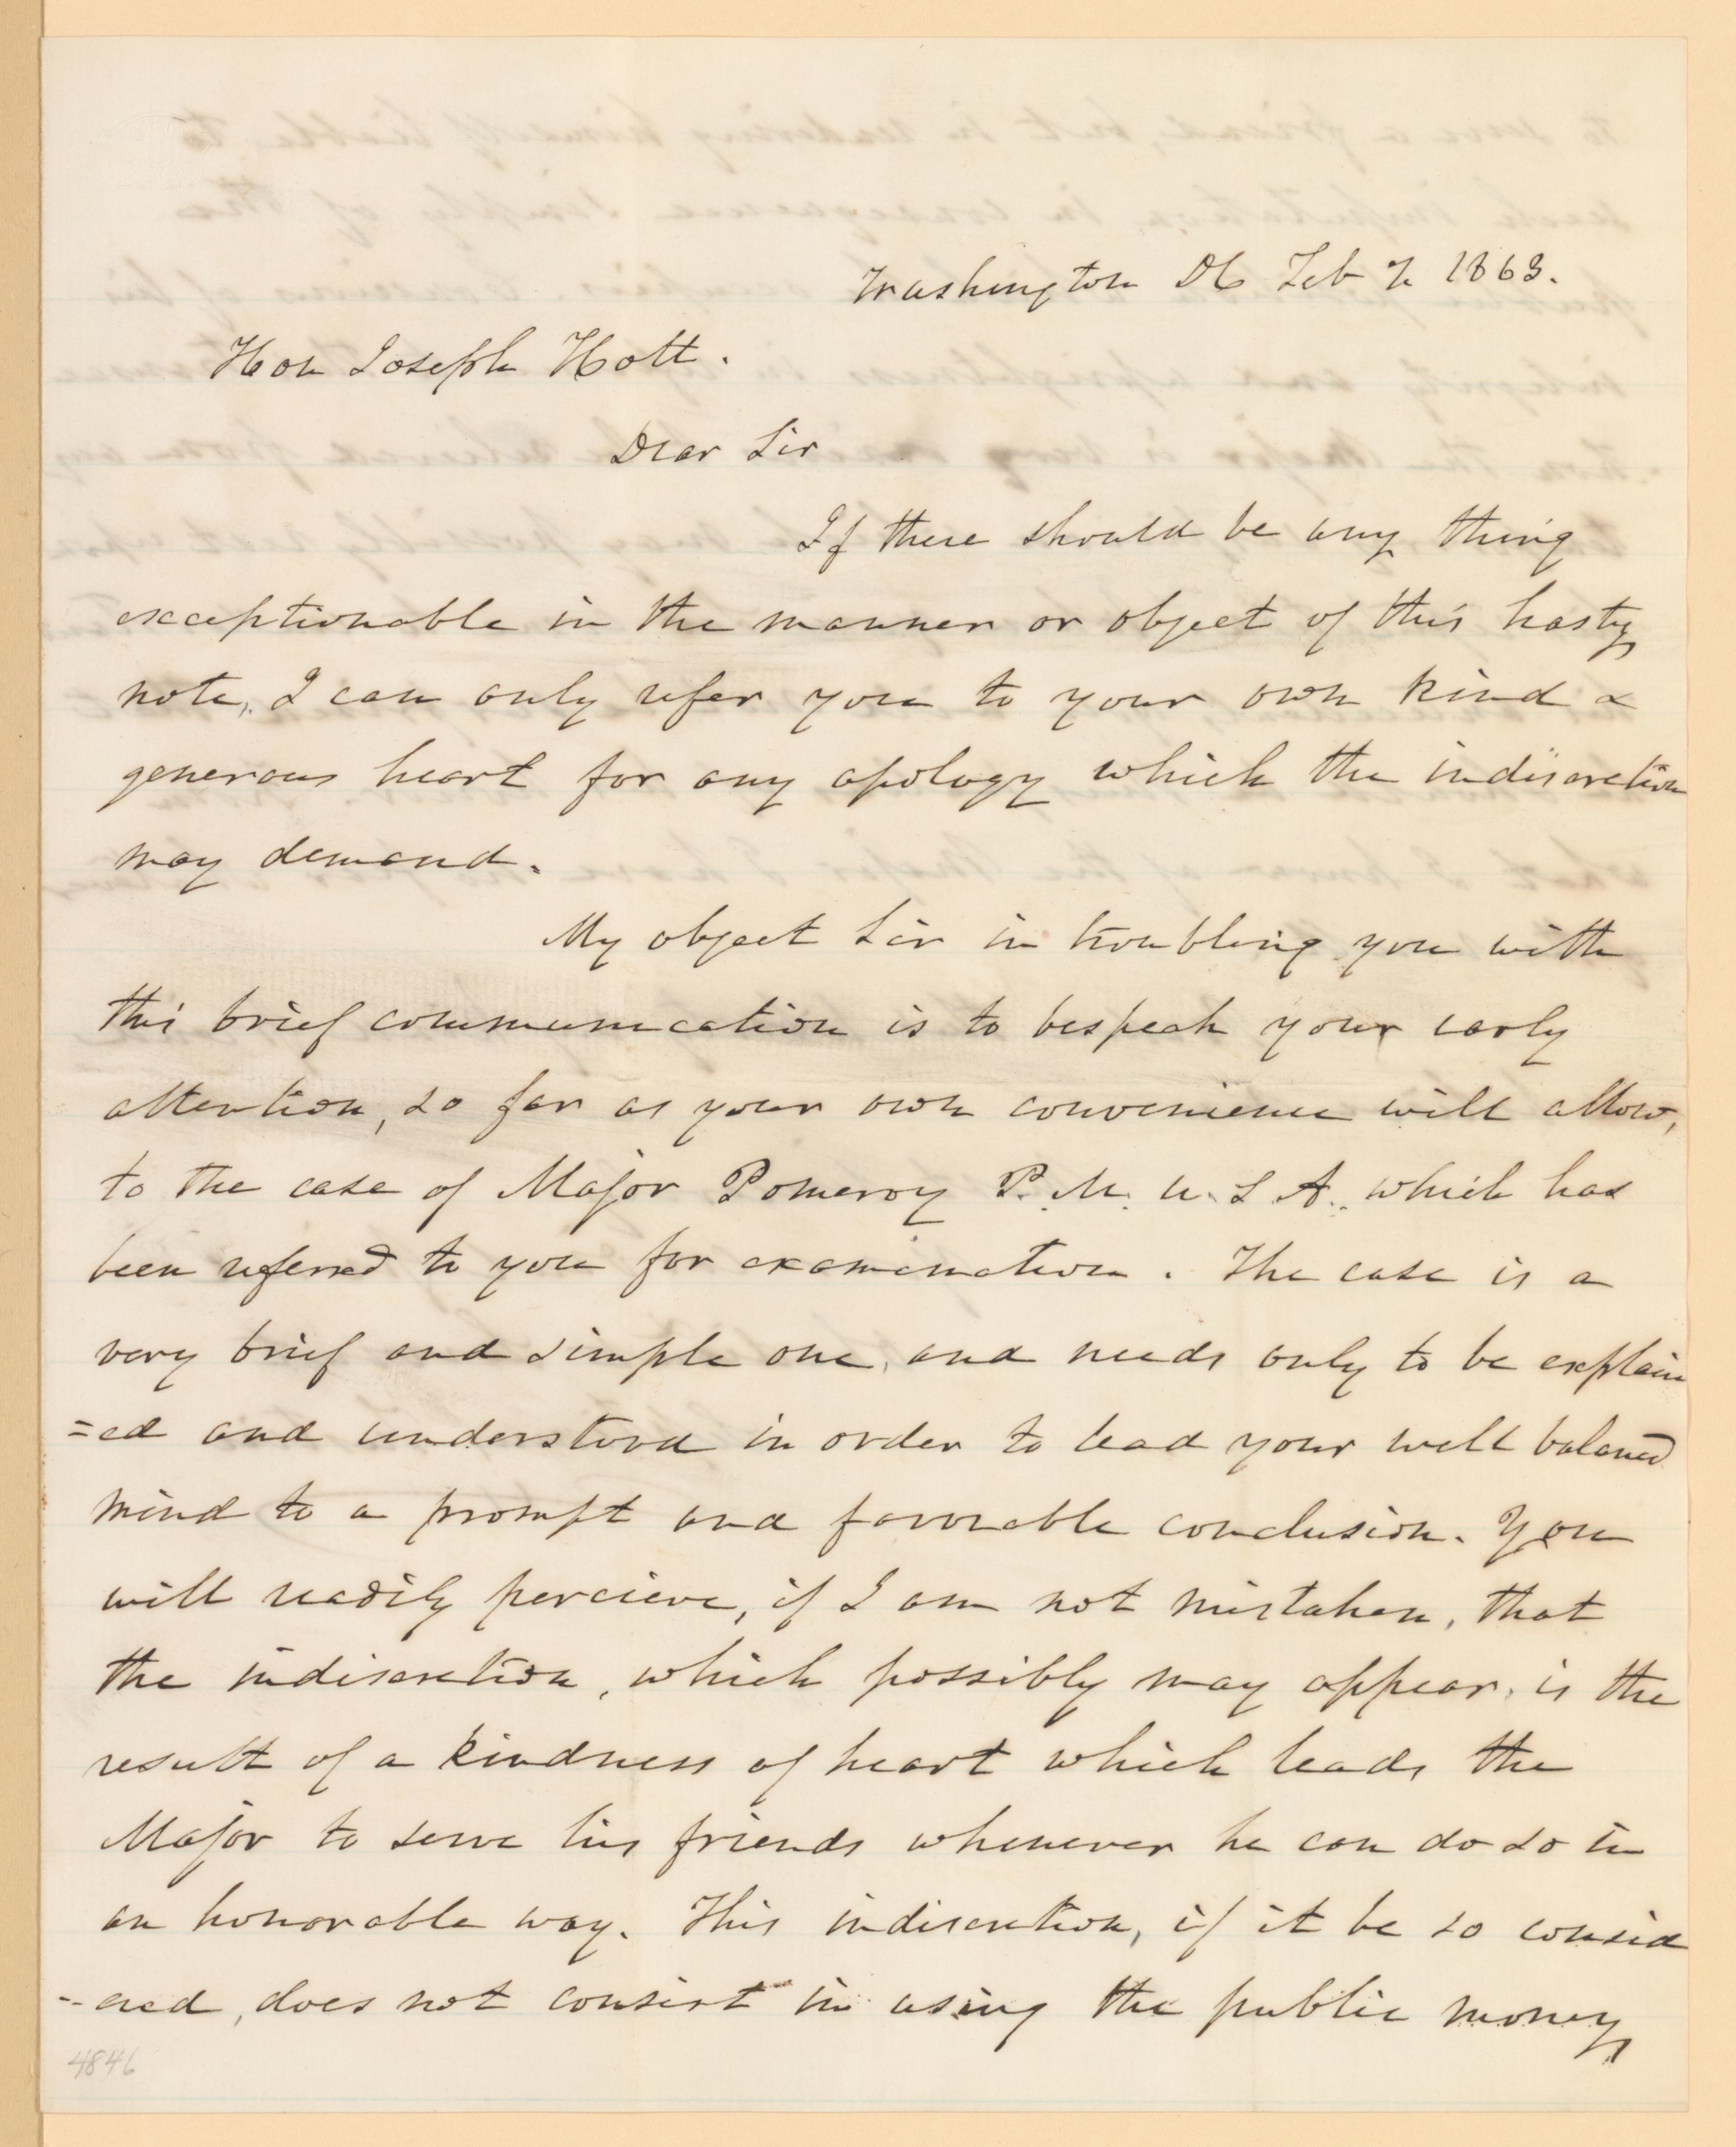 Washington DC Feb 7 1863.
Hon Joseph Holt.
Dear Sir
If there should be any thing
exceptionable in the manner or object of this hasty
note, I can only refer you to your own kind &
generous heart for any apology which the indiscretion
may demand.
My object Sir in troubling you with
this brief communication is to bespeak your early
attention, so far as your own convenience will allow,
to the case of Major Pomeroy P. M. U. S A. which has
been referred to you for examination. The case is a
very brief and simple one, and needs only to be explain
=ed and understood in order to lead your well balanced
mind to a prompt and favorable conclusion. You
will readily percieve, if I am not mistaken, that
the indiscretion, which possibly may appear, is the
result of a kindness of heart which leads the
Major to serve his friends whenever he can do so in
an honorable way. This indiscretion, if it be so consid
-ered, does not consist in using the public money
4846